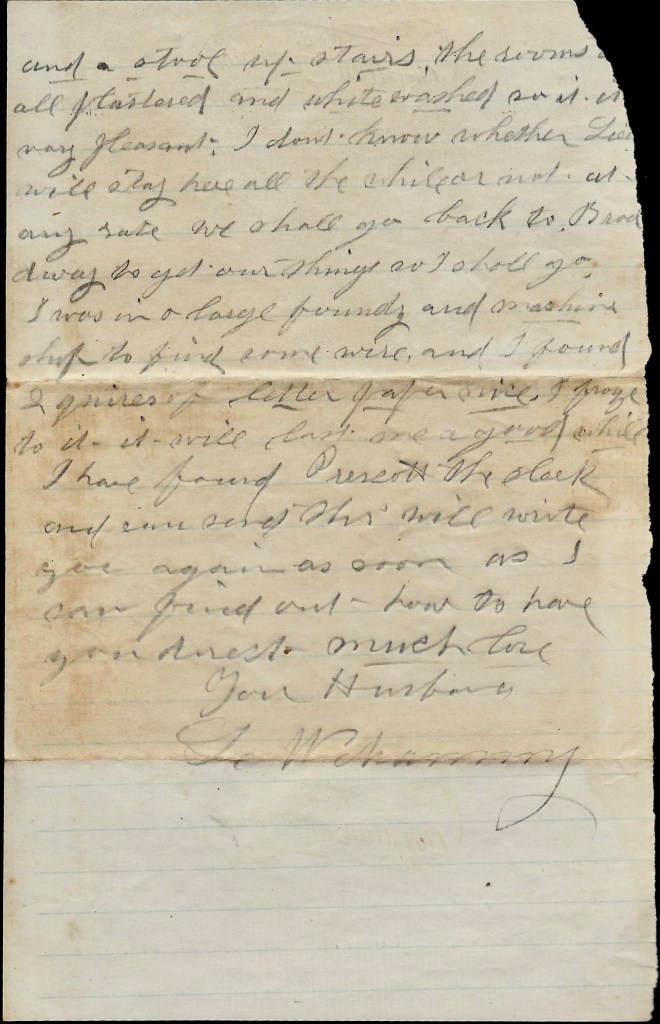 and a stool up stairs, the rooms
all plastered and whitewashed so it is
vary pleasant. I dont know whether
will stay here all the while or not. at
any rate we shall go back to Broa
dway to get our things so I shall go.
I was in a large foundy and mashine
shop to find some wire, and I found
2 quires of letter paper nice I froze
to it it will last me a good while
I have found Prescott the clock
and can send this will write
you again as soon as I
can find out how to have
you direct. much love
Your Husband
Channing